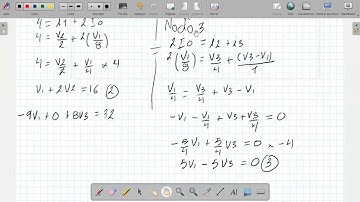 4 = i1 + 2I0
4 = V2/2 + 2(V1/8)
4 = V2/2 + V1/4 × 4
V1 + 2V2 = 16 ②
-9V1 + 0 + 8V3 = 32
Nodo 3
2I0 = i2 + i3
2(V1/8) = V3/4 + (V3-V1)/1
V1/4 = V3/4 + V3 - V1
-V1 - V1/4 + V3 + V3/4 = 0
-5/4 V1 + 5/4 V3 = 0 × -4
5V1 - 5V3 = 0 ③